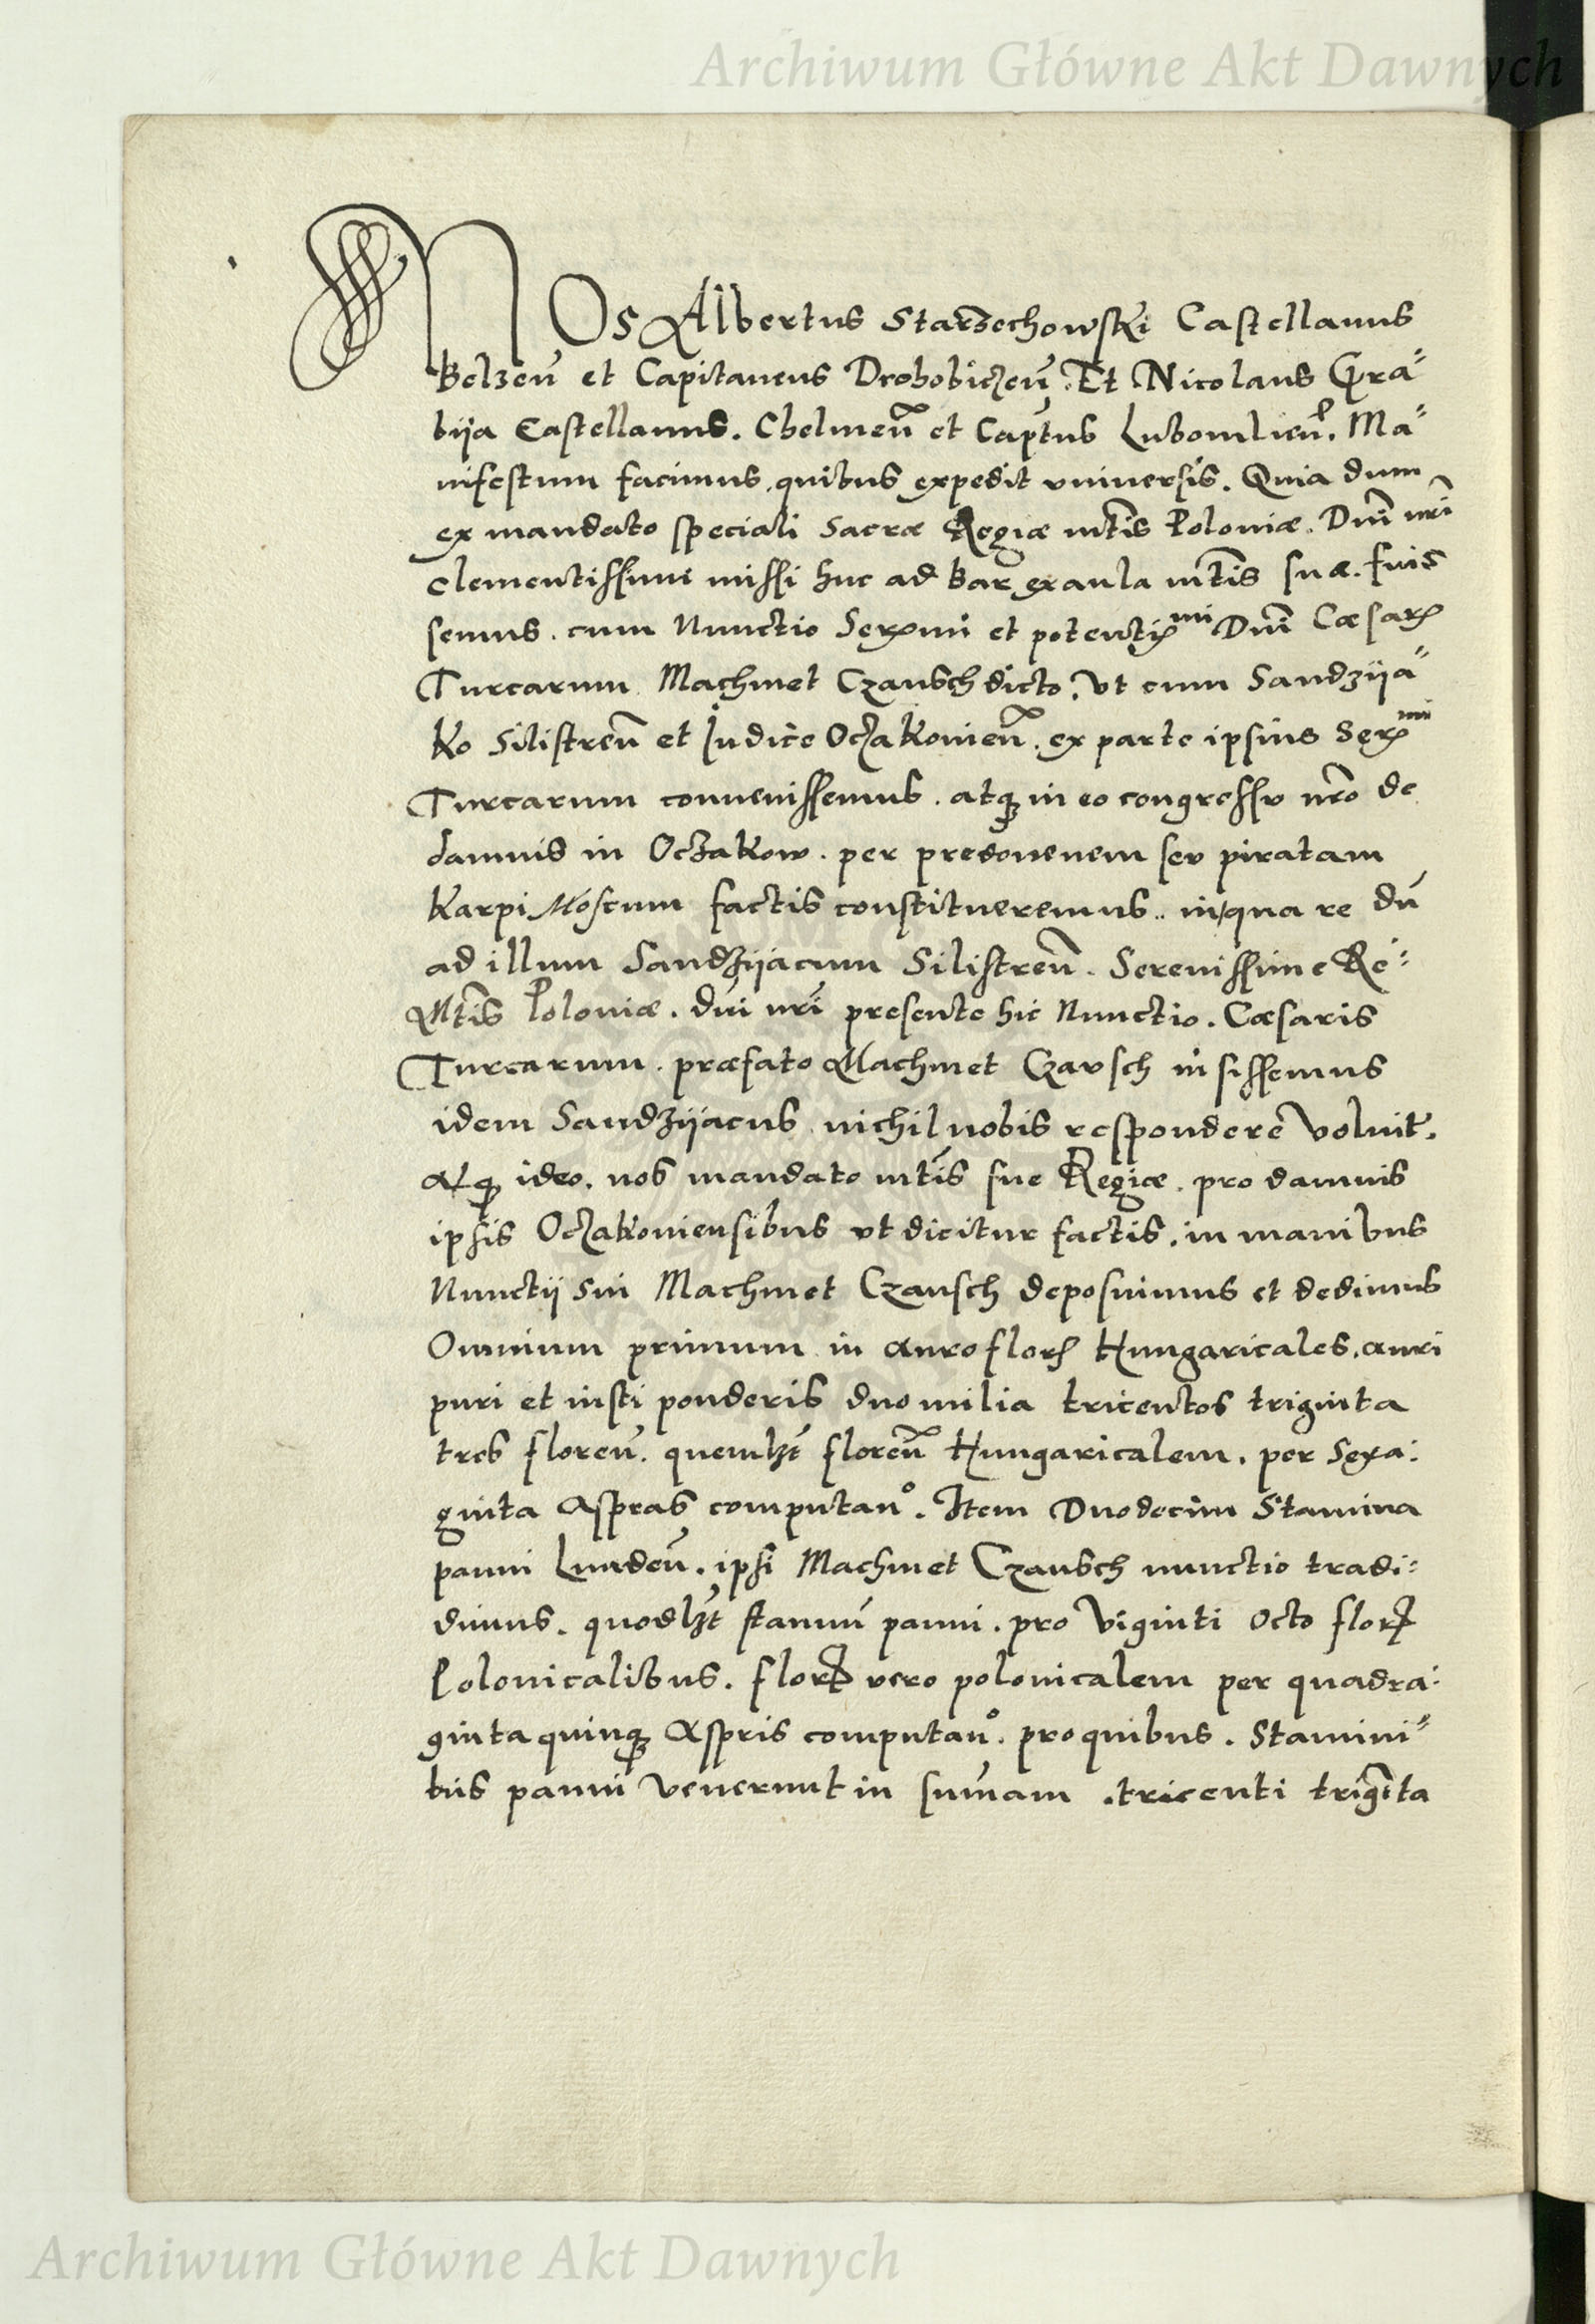 Archiwum Główne Akt Dawnych
NOs Albertus Starzechowski Castellanus
Belzen̄ et Capitaneus Drohobiczen̄. Et Nicolaus Gra⸗
bija Castellanus. Chelmen̄ et Captus Lubomlien̄. Ma⸗
nifestum facimus, quibus expedit vniuersis. Quia dum
ex mandato speciali Sacræ Regiæ mtis Poloniæ. Dni nri
clementissimi missi huc ad Bar ex aula mtis suæ. fuis
semus. cum Nunctio Serxmi et potentixmi Dni Cæsarꝭ
Turcarum Machmet Czaush dicto, vt cum Sandzija⸗
ko Silistren̄ et Judice Oczakouien̄. ex parte ipsius Serxmi
Turcarum conuenissemus. atqꝫ in eo congressv nro de
damnis in Oczakow. per predonenem sev piratam
Karpi Moscum factis constitueremus.. in qua re dū
ad illum Sandzijacum Silistren̄. Serenissime Re⸗
Mtis Poloniæ. dni nri presente hic Nunctio. Cæsaris
Turcarum. præfato Machmet Czavsch insissemus
idem Sandzijacus nichil nobis respondere voluit.
atqꝫ ideo. nos mandato mtis sue Regiæ. pro damnis
ipsis Oczakouiensibus vt dicitur factis. in manibus
Nunctij sui Machmet Czausch deposuimus et dedimus
Omnium primum in auro florꝭ Hungaricales. auri
puri et iusti ponderis duo milia tricentos triginta
tres floren̄. quemlꝫt floren̄ Hungaricalem. per Sexa⸗
ginta Aspras computan°. Item Duodecim Stamina
panni Lunden̄. ipsi Machmet Czaush nunctio tradi⸗
dimus. quodlꝫt stamū panni. pro viginti octo florꝭ
Polonicalibus. florꝭ vero polonicalem per quadra⸗
ginta quinqꝫ Aspris computan°. pro quibus. Stamini⸗
bus panni venerunt in sum̄am .tricenti trigīta
Archiwum Główne Akt Dawnych